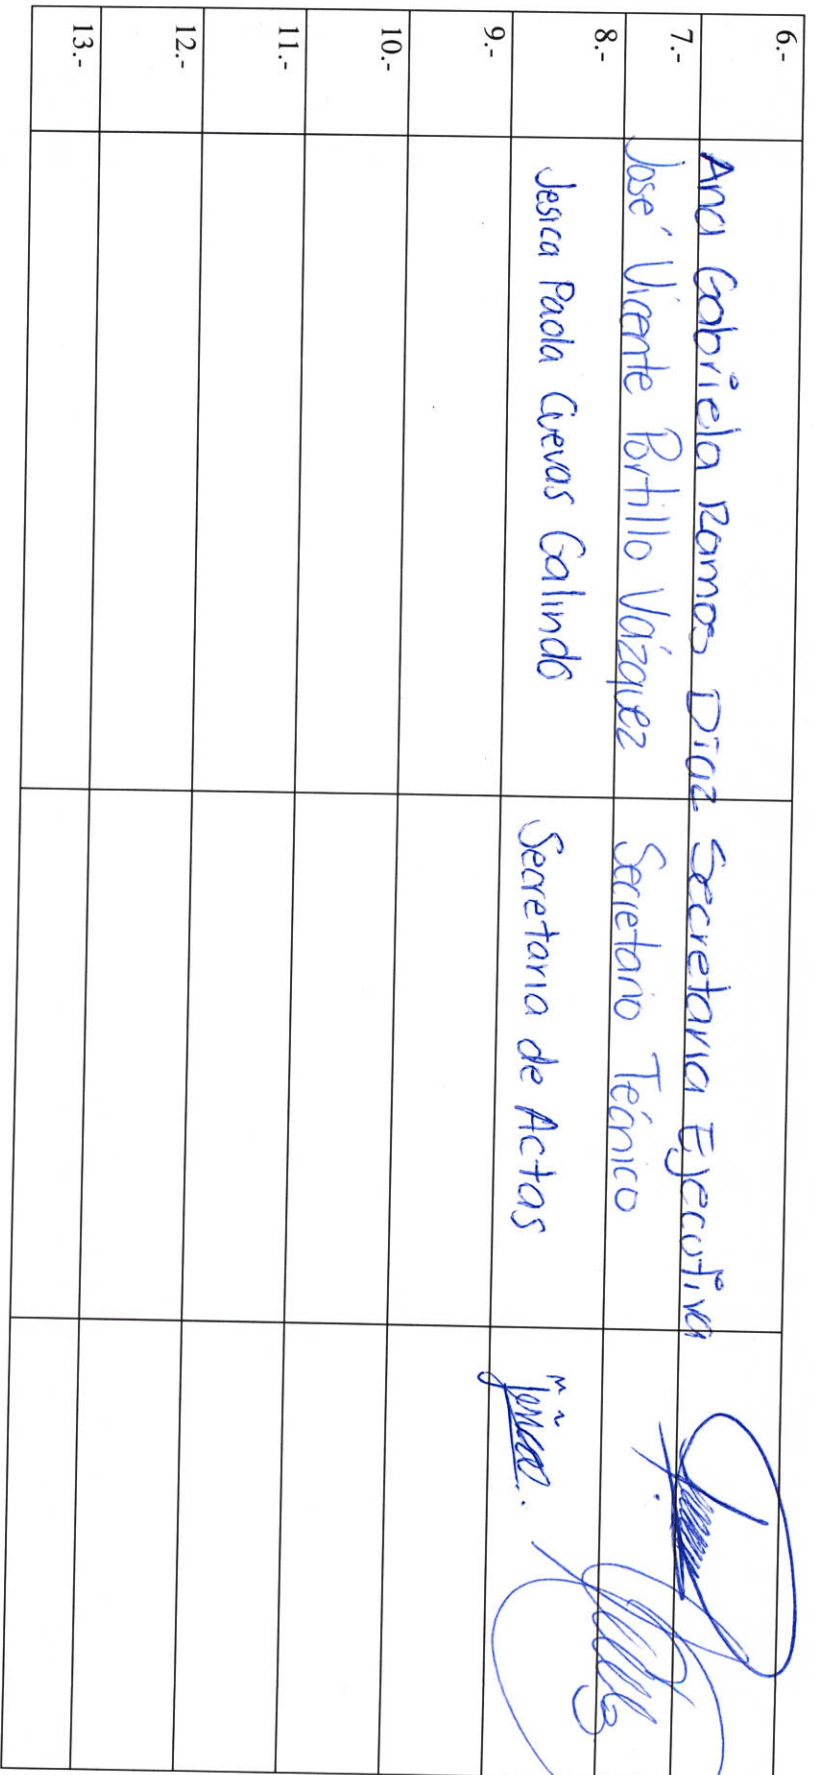 6.- Ana Gabriela Ramos Díaz Secretaria Ejecutiva
7.- José Vicente Portillo Vázquez Secretario Técnico
8.- Jesica Paola Cuevas Galindo Secretaria de Actas
9.-
10.-
11.-
12.-
13.-